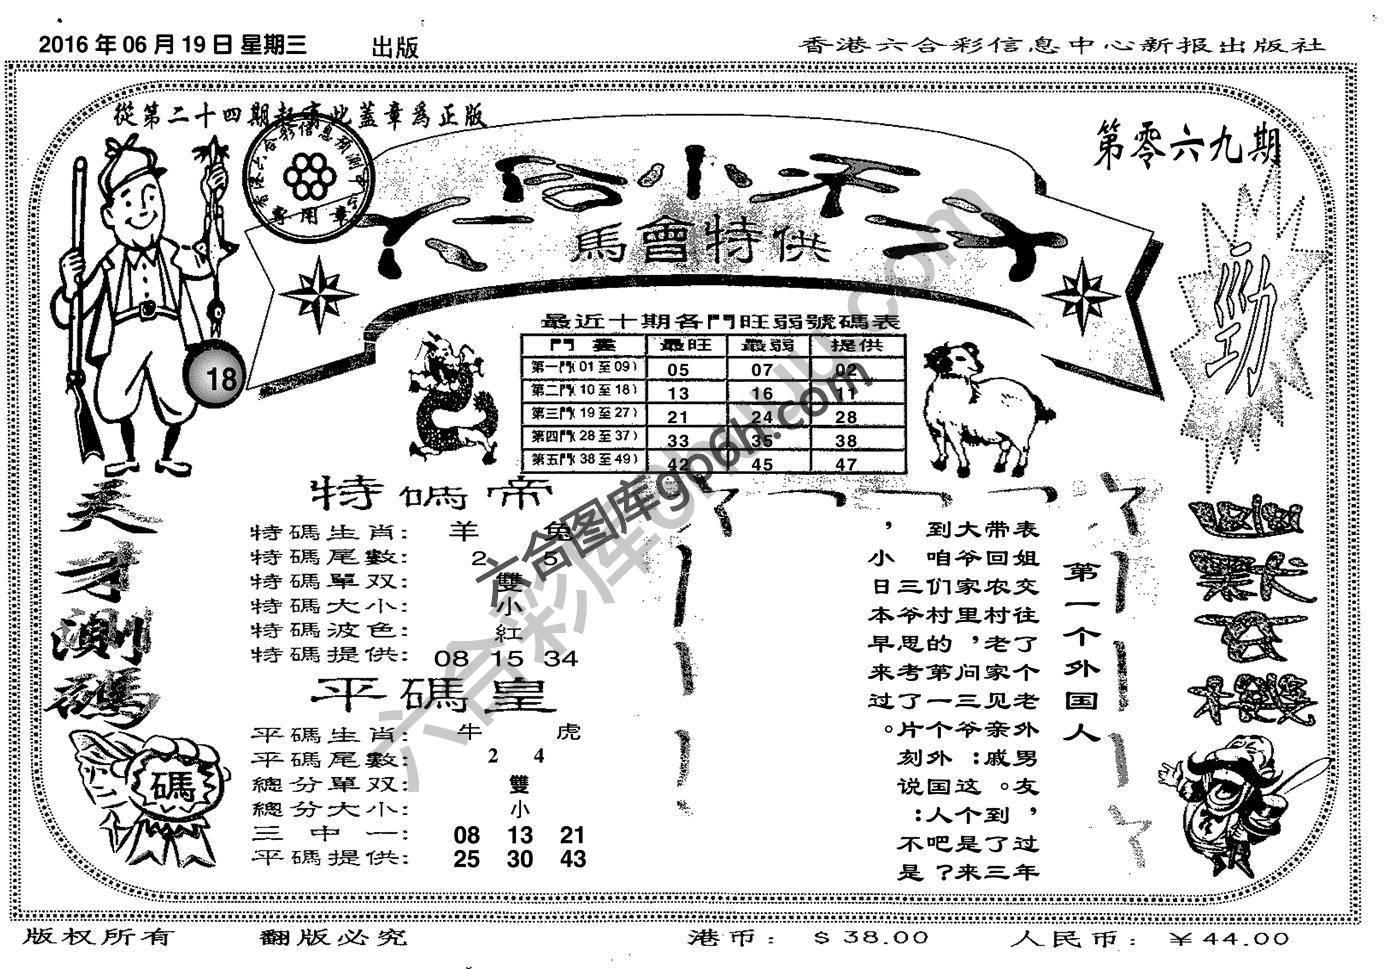 2016 年 06 月 19 日 星期三 出版
香港六合彩信息中心新报出版社
從第二十四期起寄此蓋章爲正版
第零六九期
馬會特供
專用章
勁
18
最近十期各門旺弱號碼表
門 畫 最旺 最弱 提供
第一門(01至09) 05 07 02
第二門(10至18) 13 16 11
第三門(19至27) 21 24 28
第四門(28至37) 33 35 38
第五門(38至49) 42 45 47
天才測碼
碼
特碼帝
特碼生肖: 羊 兔
特碼尾數: 2 5
特碼單双: 雙
特碼大小: 小
特碼波色: 紅
特碼提供: 08 15 34
平碼皇
平碼生肖: 牛 虎
平碼尾數: 2 4
總分單双: 雙
總分大小: 小
三中一: 08 13 21
平碼提供: 25 30 43
第一个外国人
表姐交往了个老外男友，过年
带回农村老家见亲戚。到了三
大爷家里，问三爷：这个是来
到咱们村的第一个外国人吧？
三爷思考了片刻说：不是
，小日本早来过。
六合图库gp6h.com
版权所有 翻版必究 港币: $38.00 人民币: ￥44.00